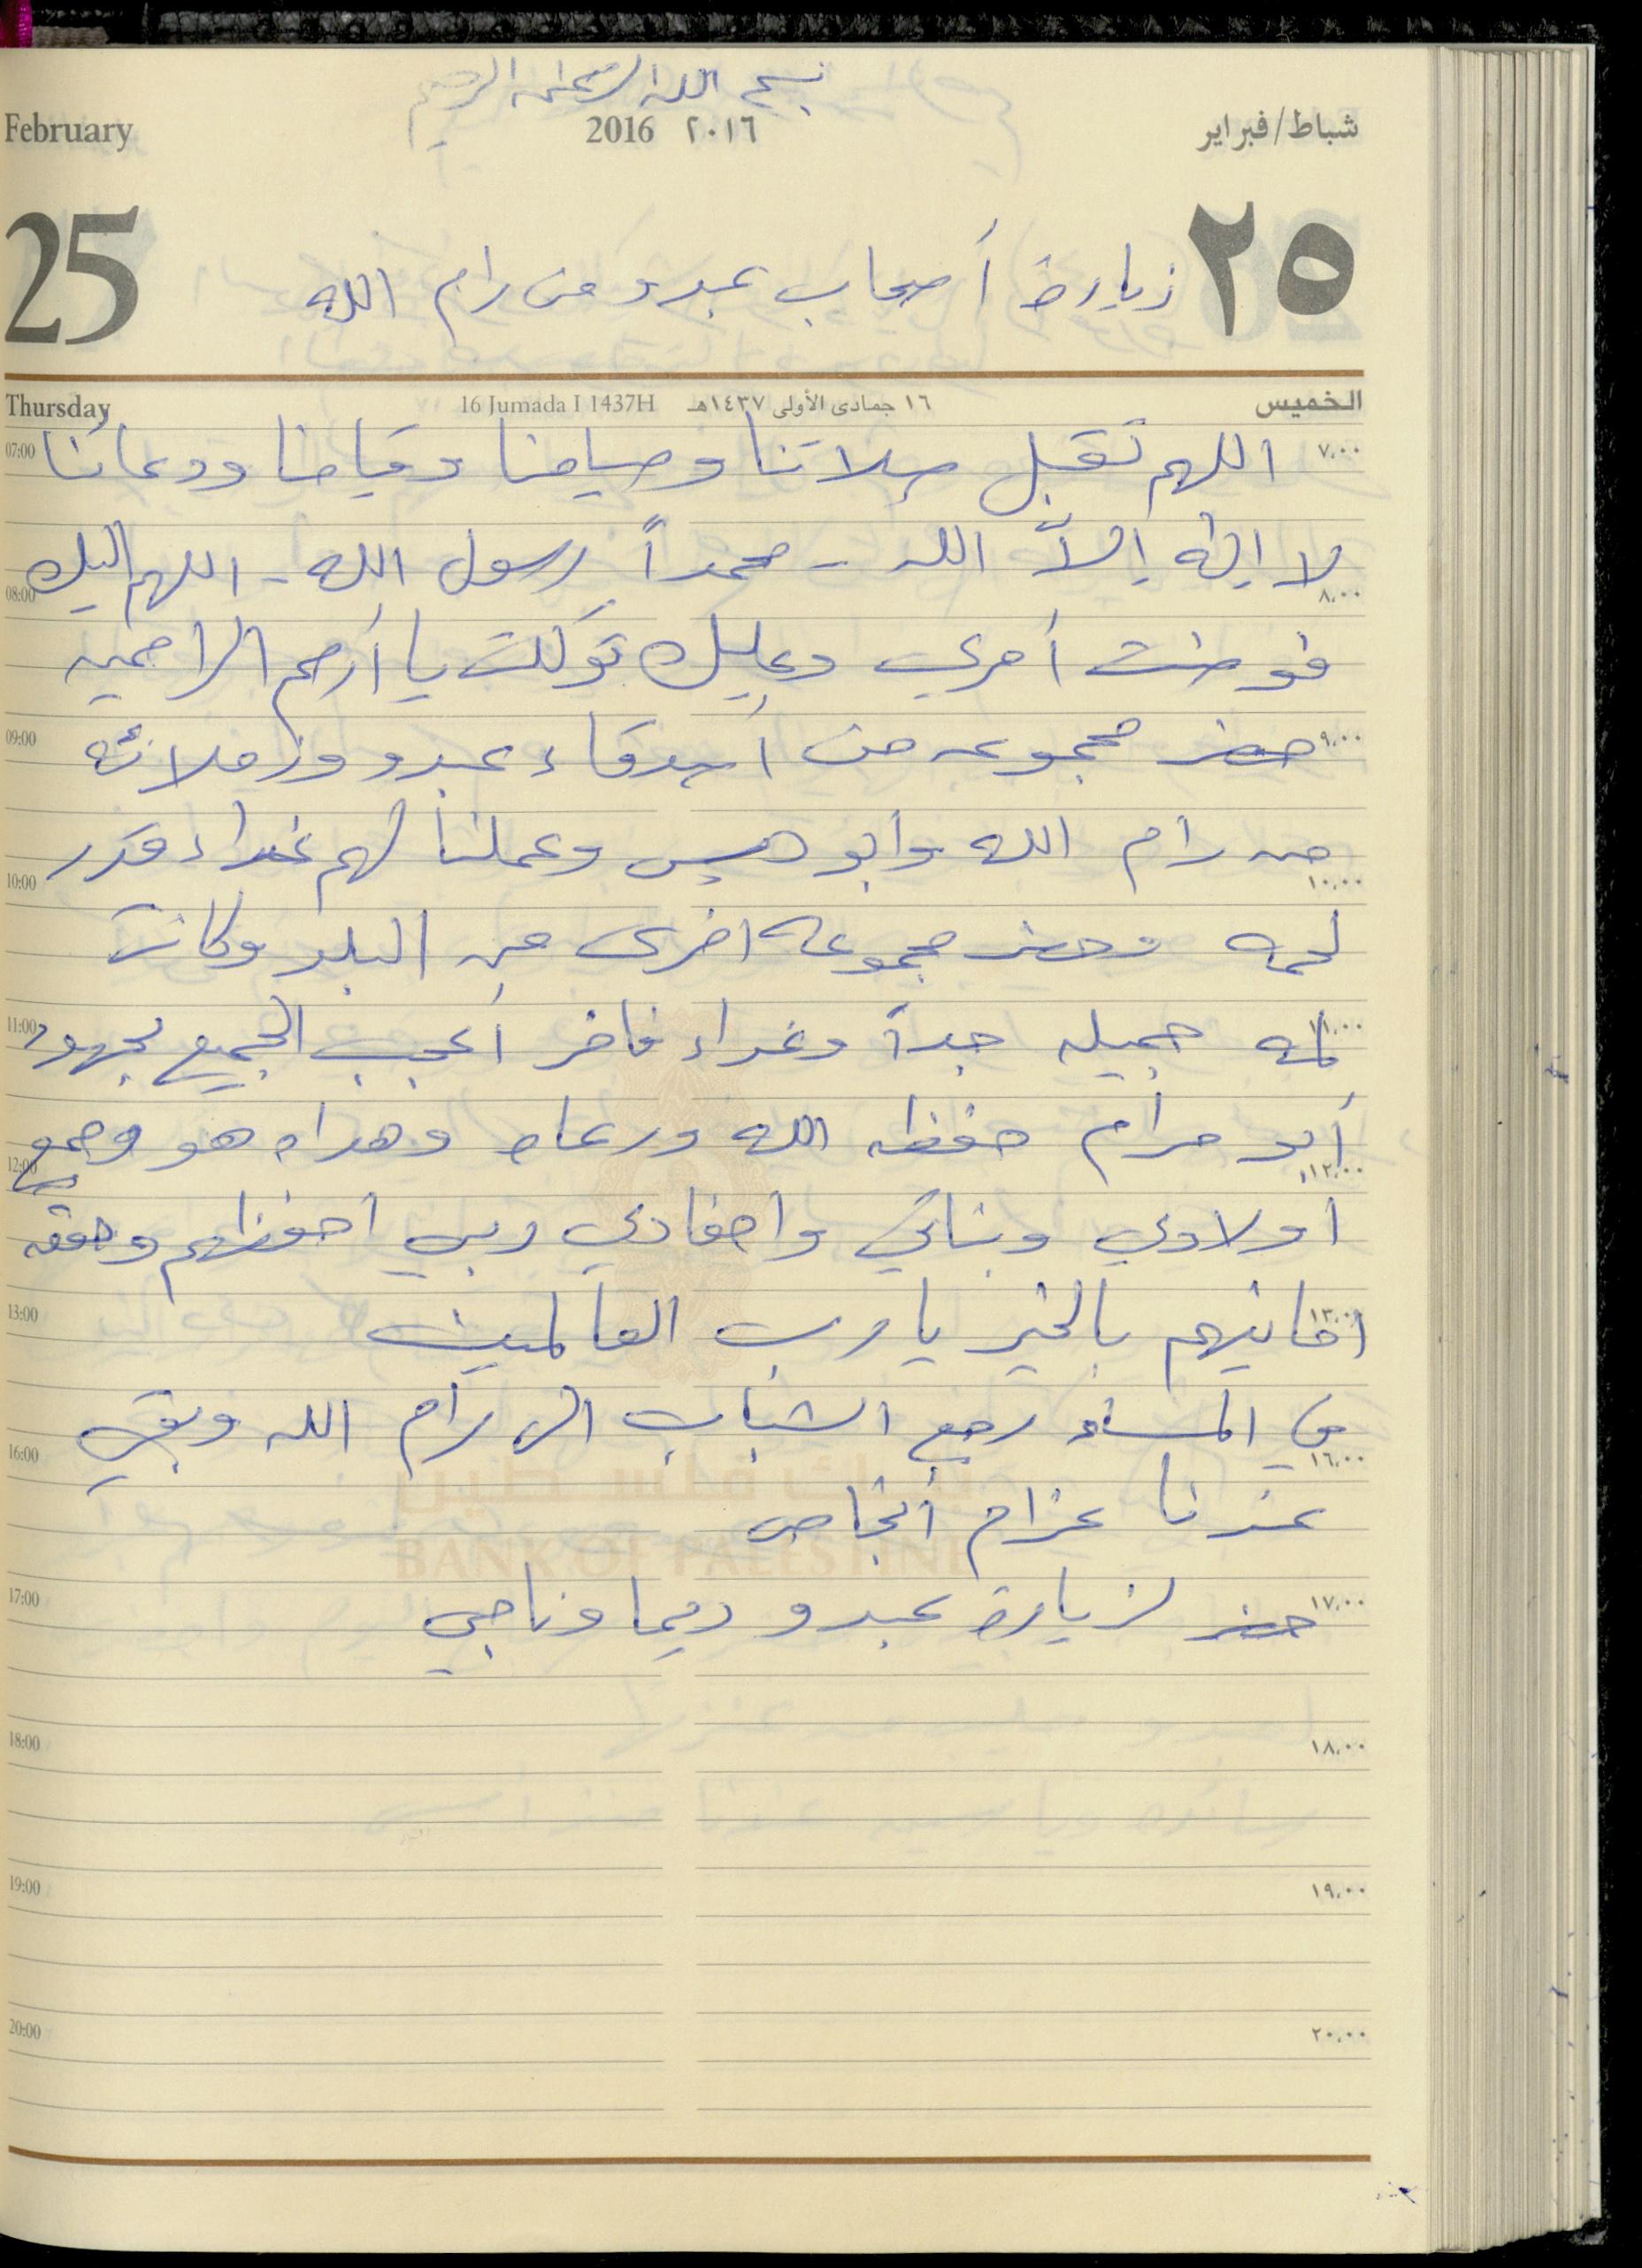 بسم الله الرحمن الرحيم
February 2016 ٢٠١٦ شباط/فبراير
25 ٢٥
زيارة أصحاب عبدو من رام الله
Thursday 16 Jumada I 1437H ١٦ جمادى الأولى ١٤٣٧هـ الخميس
07:00 اللهم تقبل صلاتنا وصيامنا وقيامنا ودعائنا ٧,٠٠
لا إله إلاّ الله - محمداً رسول الله - اللهم اليك
08:00 ٨,٠٠
فوضت أمري وعليك توكلت يا أرحم الراحمين
09:00 حضر مجموعه من أصدقاء عبدو وزملائه ٩,٠٠
من رام الله وأبو ديس وعملنا لهم غداء قدر
10:00 ١٠,٠٠
لحمه وحضر مجموعه اخرى من البلد وكانت
11:00 لمه جميله جداً وغداء فاخر أعجب الجميع بجهود ١١,٠٠
أبو مرام حفظه الله ورعاه وهداه هو وجميع
12:00 ١٢,٠٠
اولادي وبناتي واحفادي ربي احفظهم وحقق
13:00 امانيهم بالخير يا رب العالمين ١٣,٠٠
في المساء رجع الشباب الى رام الله وبقي
16:00 ١٦,٠٠
عندنا عزام
بنك فلسطين
BANK OF PALESTINE
17:00 حضر لزيارة عبدو ديما وناجي ١٧,٠٠
18:00 ١٨,٠٠
19:00 ١٩,٠٠
20:00 ٢٠,٠٠